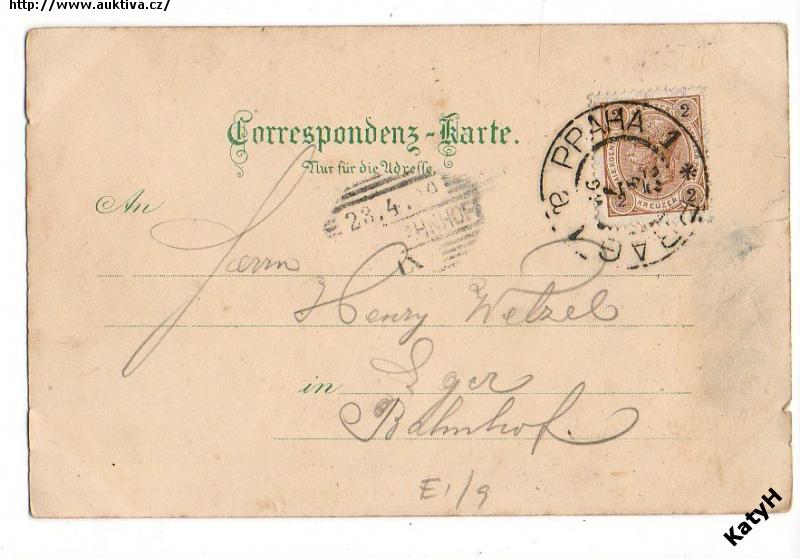 http://www.auktiva.cz/
Correspondenz-Karte.
Nur für die Adresse.
2
KREUZER
2
PRAHA 1
PRAG 1
23.4.
BAHNHOF
An
Herrn
Henry Welzel
in Eger
Bahnhof.
E1/9
KatyH